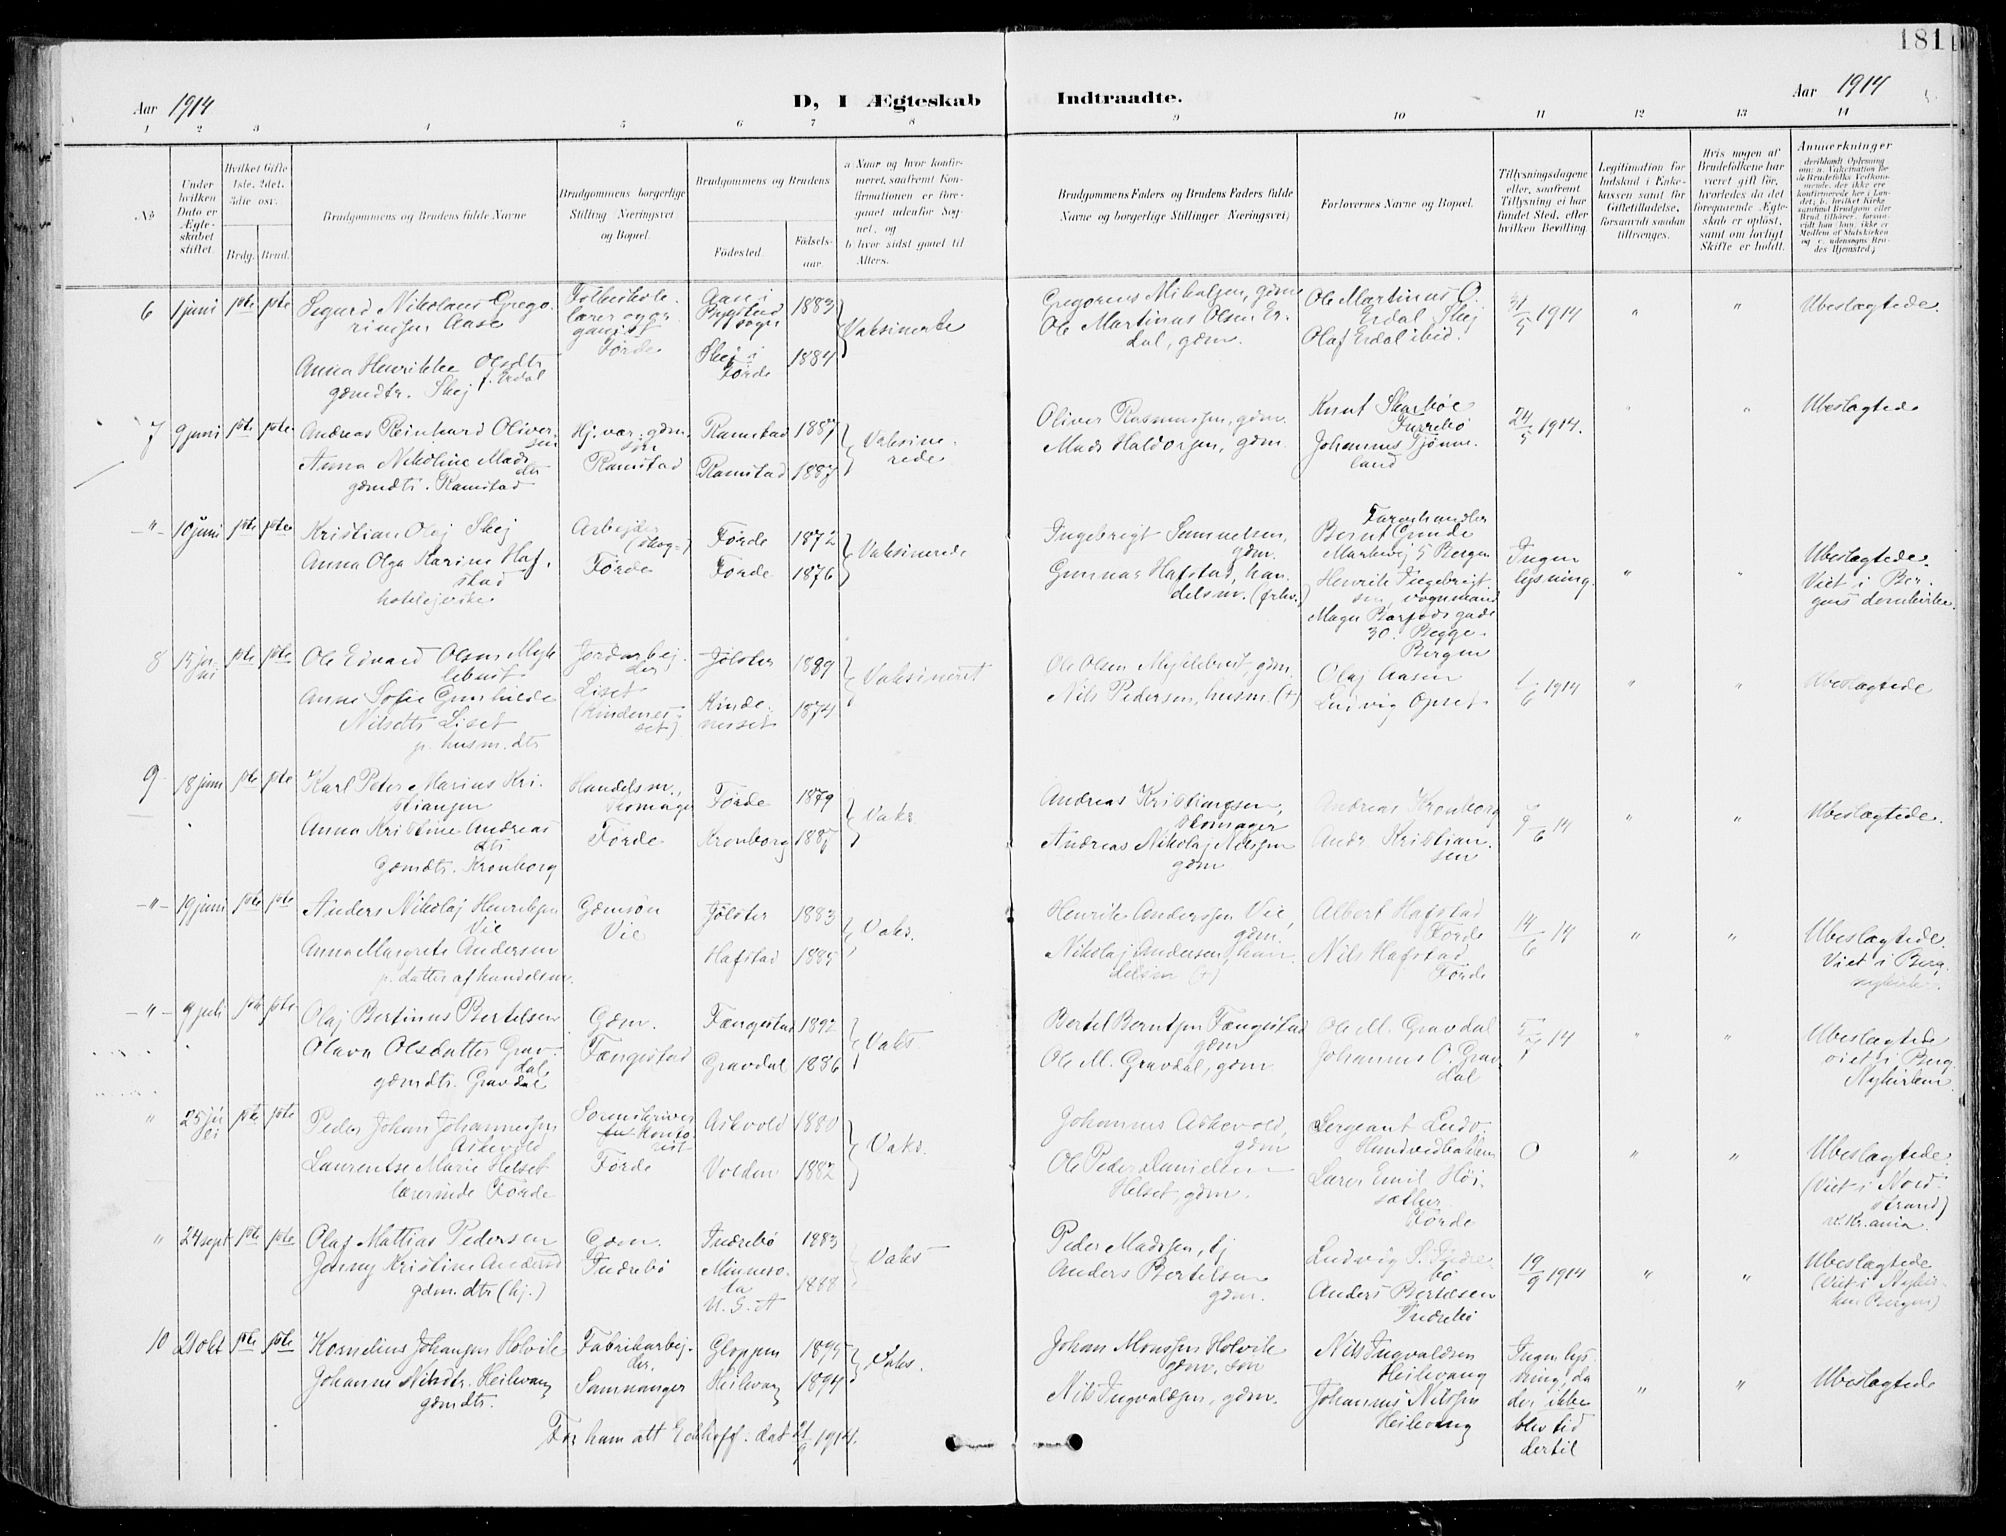 181
Aar 1914
D, I Ægteskab Indtraadte.
Aar 1914
1 2 3 4 5 6 7 8 9 10 11 12 13 14
No
Under hvilken Dato er Ægteskabet stiftet
Hvilket Gifte 1ste, 2det, 3die osv.
Brdg. Brud.
Brudgommens og Brudens fulde Navne
Brudgommens borgerlige Stilling Næringsvei og Bopæl.
Brudgommens og Brudens
Fødested. Fødselsaar.
a Naar og hvor konfirmeret, saafremt Konfirmationen er foregaaet udenfor Sognet, og
b hvor sidst gaaet til Alters.
Brudgommens Faders og Brudens Faders fulde Navne og borgerlige Stillinger Næringsvei)
Forlovernes Navne og Bopæl.
Tillysningsdagene eller, saafremt Tillysning ei har fundet Sted, efter hvilken Bevilling.
Legitimation for Indskud i Enkekassen samt for Giftetilladelse, forsaavidt saadan tiltrænges.
Hvis nogen af Brudefolkene har været gift før, hvorledes da det foregaaende Ægteskab er opløst, samt om lovligt Skifte er holdt.
Anmerkninger
6 1 juni 1ste 1ste Sigurd Nikolaus Gregoriussen Aase
Folkeskolelærer og organist Førde
Aase i Bygstad sogn 1883 Vaksinerte
Gregorius Mikalsen, gdm
Ole Martinus O. Erdal Skej
31/5 1914 " " Ubeslægtede.
Anna Henrikke Olsdtr f. Erdal
gdmdtr. Skej
Skej i Førde 1884
Ole Martinus Olsen Erdal, gdm.
Olaf Erdal ibid.
7 9 juni 1ste 1ste Andreas Reinhard Oliversen
Hj. var. gdm. søn Ramstad
Ramstad 1887 Vaksinerede
Oliver Rasmussen, gdm.
Knut Skarbøe Furebø
24/5 1914. " " Ubeslægtede
Anna Nikoline Madsdtr
gdmdtr. Ramstad
Ramstad 1887
Mads Haldorsen, gdm.
Johannes Gjønneland
-"- 10 juni 1ste 1ste Kristian Olaj Skej
Arbejder (skog-) Førde
Førde 1872 Vaksinerede
Ingebrigt Samuelsen, gdm.
Farvehandler Bernt Gunde Markevej 5 Bergen
Ingen lysning. " " Ubeslægtede. Viet i Bergens domkirke.
Anna Olga Karine Hafstad
hotelejerske
Førde 1876
Gunnar Hafstad, handelsm. (ørkv.)
Henrik Ingebrigtsen, vognmand Magn Barfods gade 30. Begge Bergen
8 15 juni 1ste 1ste Ole Edvard Olsen Myklebust
Jordarbejder Liset (Kindenesset)
Jølster 1889 Vaksineret
Ole Olsen Myklebust, gdm.
Olaj Aasen
1/6 1914 " " Ubeslægtede
Anne Sofie Gunhilde Nilsdtr Liset
p. husm. dtr
Kindenesset 1874
Nils Pedersen, husm. (+)
Ludvig Opset.
9 18 juni 1ste 1ste Karl Peter Marius Kristiansen
Handelsm., skomager Førde
Førde 1879 Vaks
Andreas Kristiansen, skomager
Andreas Kronborg
7/6 14 " " Ubeslægtede.
Anna Kristine Andreasdtr
Gdmdtr. Kronborg
Kronborg 1887
Andreas Nikolaj Nilsen gdm
Andr Kristiansen
-"- 19 juni 1ste 1ste Anders Nikolaj Henriksen Vie
Gdmsøn Vie
Jølster 1883 Vaks.
Henrik Anderssen Vie, gdm.
Albert Hafstad Førde
14/6 14 " " Ubeslægtede. Viet i Berg. nykirke.
Anna Margrete Andersen
p. datter af handelsm.
Hafstad 1885
Nikolaj Andersen, handelsm (+)
Nils Hafstad Førde
-"- 9 juli 1ste 1ste Olaj Bertinus Bertelsen
Gdm. Fængestad
Fængestad 1892 Vaks.
Bertel Berntsen Fængestad gdm
Ole M. Gravdal
5/7 14 " " Ubeslægtede viet i Berg. Nykirken
Olava Olsdatter Gravdal
gdmdtr. Gravdal
Gravdal 1886
Ole M. Gravdal, gdm
Johannes O. Gravdal
" 25 juli 1ste 1ste Peder Johan Johannessen Askevold
Sorenskriver Kontorist Førde
Askvold 1880 Vaks.
Johannes Askevold, gdm
Sergeant Ludv. Hundvedbakken
0 " " Ubeslægtede. (Viet i Nordstrand) v. Kr.ania.
Laurentse Marie Helset
lærerinde Førde
Volden 1882
Ole Peder Danielsen Helset, gdm.
Lærer Emil Høisæther Førde
" 24 sept 1ste 1ste Olaf Mattias Pedersen
Gdm. Indrebø
Indrebø 1883 Vaks
Peder Madssen, hj
Ludvig S. Indrebø
19/9 1914 " " Ubeslægtede (Viet i Nykirken Bergen)
Jenny Kristine Andersd
gdm. dtr (hj.)
Minnesota U.S.A 1888
Anders Bertelsen gdm.
Anders Bertelsen Indrebø
10 2 okt 1ste 1ste Kornelius Johansen Holvik
Fabrikarbejder. Samnanger
Gloppen 1895 Vaks.
Johan Monssen Holvik gdm. søn
Nils Ingvaldsen Heilevang
Ingen lysning, da der ikke blev tid dertil " " Ubeslægtede
Johanne Nilsdtr. Heilevang
gdmdtr.
Heilevang 1894
Nils Ingvaldsen, gdm.
Johannes Nilssen Heilevang
For ham att Eckhoff. dat 21/9 1914.